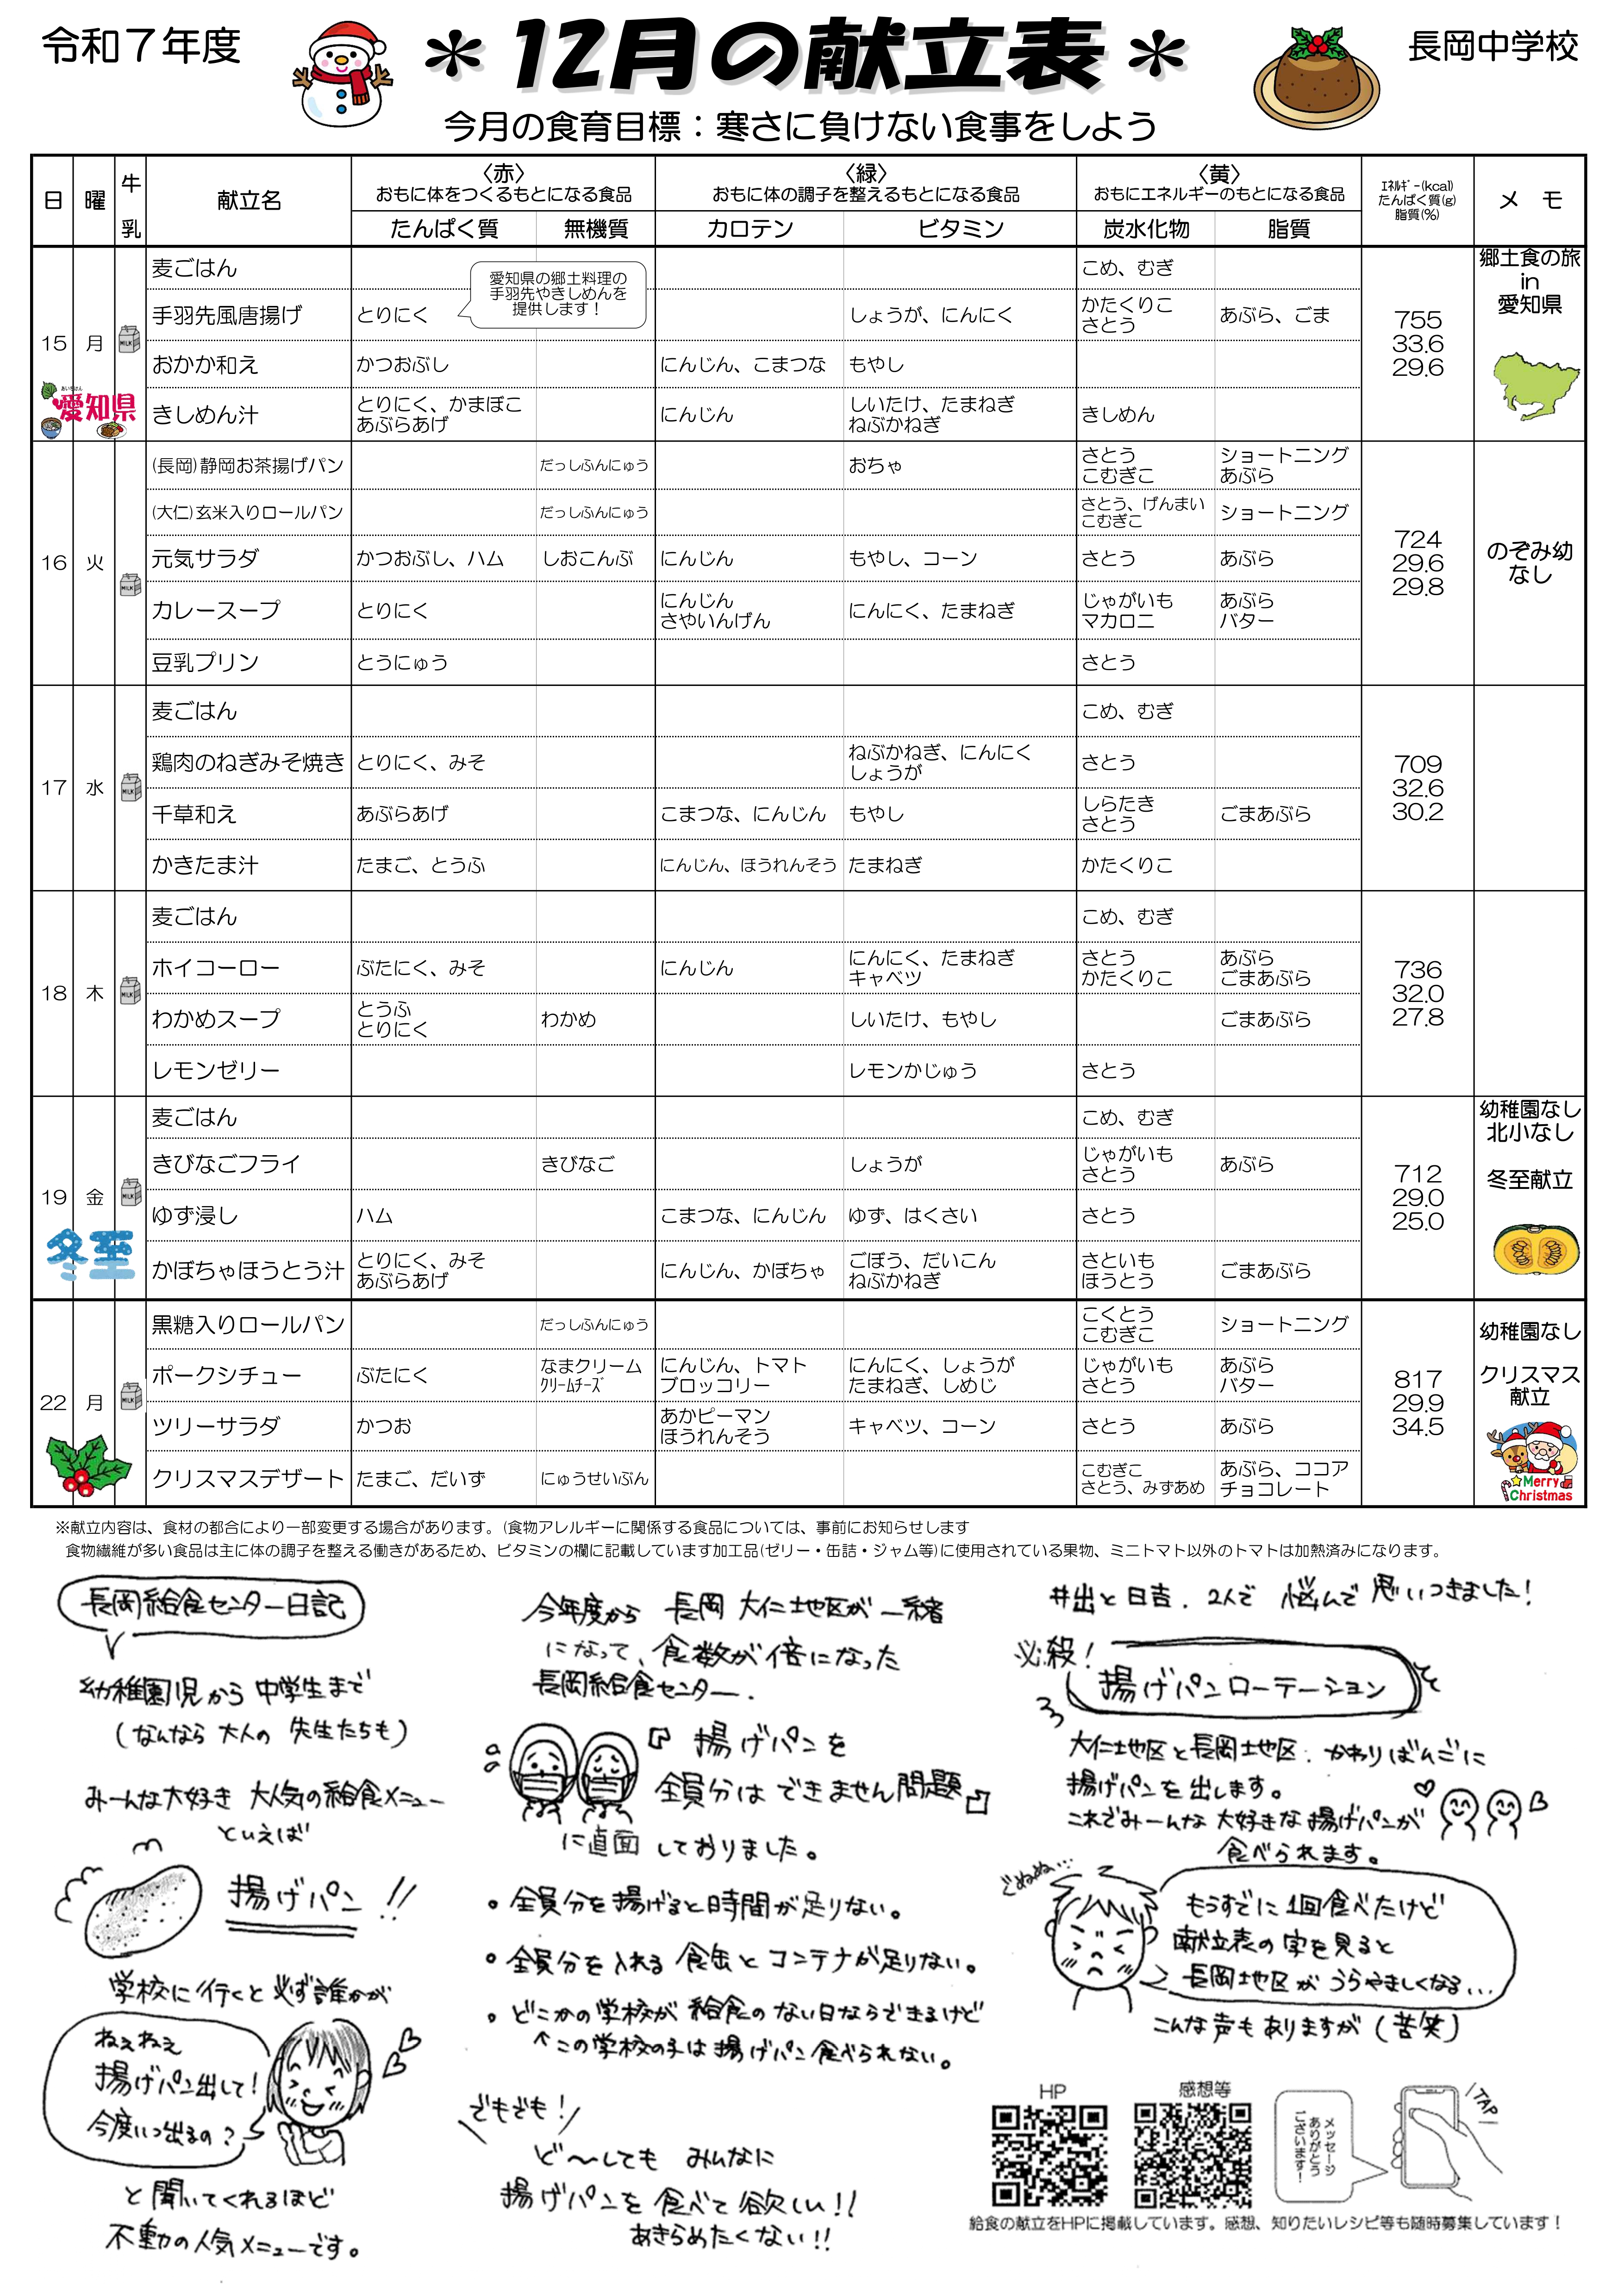 令和７年度
＊12月の献立表＊
長岡中学校
今月の食育目標：寒さに負けない食事をしよう
日 曜 牛乳 献立名 〈赤〉 おもに体をつくるもとになる食品 〈緑〉 おもに体の調子を整えるもとになる食品 〈黄〉 おもにエネルギーのもとになる食品 ｴﾈﾙｷﾞｰ(kcal) たんぱく質(g) 脂質(%) メ モ
たんぱく質 無機質 カロテン ビタミン 炭水化物 脂質
15 月 MILK
愛知県
麦ごはん こめ、むぎ
愛知県の郷土料理の
手羽先やきしめんを
提供します！
手羽先風唐揚げ とりにく しょうが、にんにく かたくりこ さとう あぶら、ごま
おかか和え かつおぶし にんじん、こまつな もやし
きしめん汁 とりにく、かまぼこ あぶらあげ にんじん しいたけ、たまねぎ ねぶかねぎ きしめん
755
33.6
29.6
郷土食の旅
in
愛知県
16 火 MILK
(長岡)静岡お茶揚げパン だっしふんにゅう おちゃ さとう こむぎこ ショートニング あぶら
(大仁)玄米入りロールパン だっしふんにゅう さとう、げんまい こむぎこ ショートニング
元気サラダ かつおぶし、ハム しおこんぶ にんじん もやし、コーン さとう あぶら
カレースープ とりにく にんじん さやいんげん にんにく、たまねぎ じゃがいも マカロニ あぶら バター
豆乳プリン とうにゅう さとう
724
29.6
29.8
のぞみ幼
なし
17 水 MILK
麦ごはん こめ、むぎ
鶏肉のねぎみそ焼き とりにく、みそ ねぶかねぎ、にんにく しょうが さとう
千草和え あぶらあげ こまつな、にんじん もやし しらたき さとう ごまあぶら
かきたま汁 たまご、とうふ にんじん、ほうれんそう たまねぎ かたくりこ
709
32.6
30.2
18 木 MILK
麦ごはん こめ、むぎ
ホイコーロー ぶたにく、みそ にんじん にんにく、たまねぎ キャベツ さとう かたくりこ あぶら ごまあぶら
わかめスープ とうふ とりにく わかめ しいたけ、もやし ごまあぶら
レモンゼリー レモンかじゅう さとう
736
32.0
27.8
19 金 MILK
冬至
麦ごはん こめ、むぎ
きびなごフライ きびなご しょうが じゃがいも さとう あぶら
ゆず浸し ハム こまつな、にんじん ゆず、はくさい さとう
かぼちゃほうとう汁 とりにく、みそ あぶらあげ にんじん、かぼちゃ ごぼう、だいこん ねぶかねぎ さといも ほうとう ごまあぶら
712
29.0
25.0
幼稚園なし
北小なし
冬至献立
22 月 MILK
黒糖入りロールパン だっしふんにゅう こくとう こむぎこ ショートニング
ポークシチュー ぶたにく なまクリーム ｸﾘｰﾑﾁｰｽﾞ にんじん、トマト ブロッコリー にんにく、しょうが たまねぎ、しめじ じゃがいも さとう あぶら バター
ツリーサラダ かつお あかピーマン ほうれんそう キャベツ、コーン さとう あぶら
クリスマスデザート たまご、だいず にゅうせいぶん こむぎこ さとう、みずあめ あぶら、ココア チョコレート
817
29.9
34.5
幼稚園なし
クリスマス
献立
Merry
Christmas
※献立内容は、食材の都合により一部変更する場合があります。(食物アレルギーに関係する食品については、事前にお知らせします
食物繊維が多い食品は主に体の調子を整える働きがあるため、ビタミンの欄に記載しています加工品(ゼリー・缶詰・ジャム等)に使用されている果物、ミニトマト以外のトマトは加熱済みになります。
長岡給食センター日記
幼稚園児から中学生まで
(なんなら大人の先生たちも)
みーんな大好き 大人気の給食メニュー
といえば
揚げパン!!
学校に行くと必ず誰かが
ねえねえ
揚げパン出して!
今度いつ出るの?
と聞いてくれるほど
不動の人気メニューです。
今年度から 長岡 大仁地区が一緒
になって、食数が倍になった
長岡給食センター.
『揚げパンを
全員分はできません問題』
に直面しておりました。
・全員分を揚げると時間が足りない。
・全員分を入れる食缶とコンテナが足りない。
・どこかの学校が給食のない日ならできるけど
↑この学校の子は揚げパン食べられない。
でもでも!
ど〜しても みんなに
揚げパンを食べて欲しい!!
あきらめたくない!!
井出と日吉. 2人で 悩んで思いつきました!
必殺!
揚げパンローテーション
大仁地区と長岡地区. かわりばんごに
揚げパンを出します。
これでみーんな大好きな揚げパンが
食べられます。
ぐぬぬぬ…
もうすでに1回食べたけど
献立表の字を見ると
長岡地区がうらやましくなる...
こんな声もありますが(苦笑)
HP
感想等
メッセージ
ありがとう
ございます！
TAP
給食の献立をHPに掲載しています。感想、知りたいレシピ等も随時募集しています！